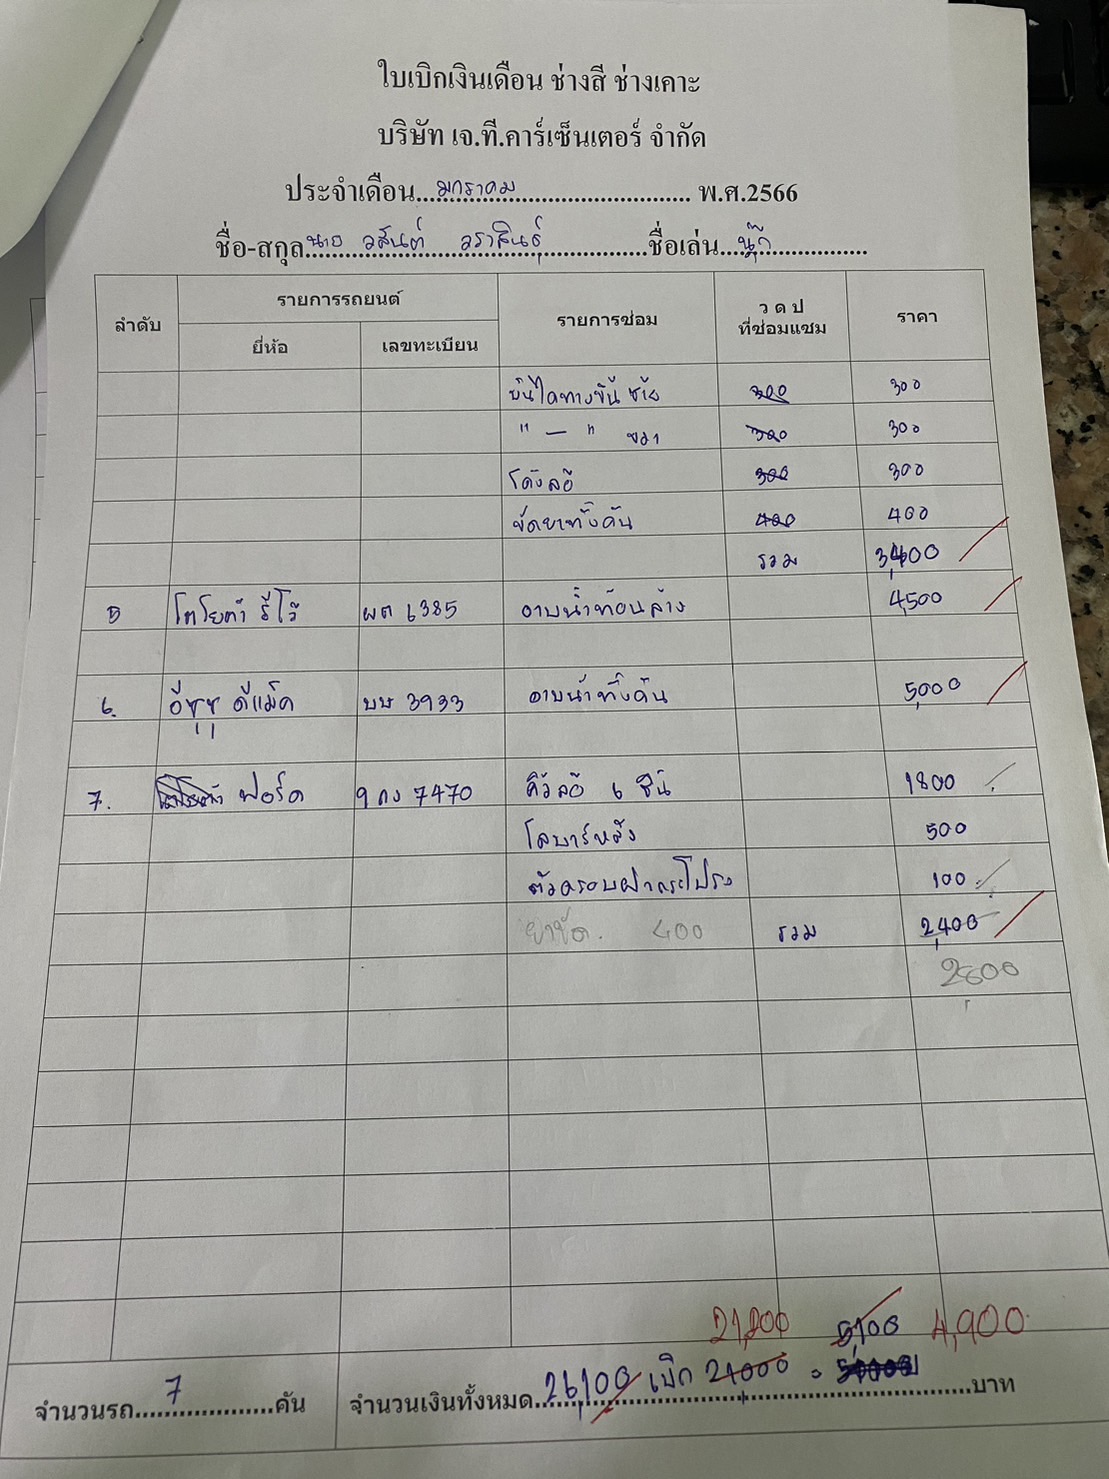 ใบเบิกเงินเดือน ช่างสี ช่างเคาะ
บริษัท เจ.ที.คาร์เซ็นเตอร์ จำกัด
ประจำเดือน...มกราคม... พ.ศ.2566
ชื่อ-สกุล นาย วสันต์ วราสินธุ์ ชื่อเล่น นุ๊ก
ลำดับ รายการรถยนต์ รายการซ่อม ว ด ป ที่ซ่อมแซม ราคา
ยี่ห้อ เลขทะเบียน
บันไดทางขึ้น ซ้าย 300 300
" — " ขวา 300 300
โค้งล้อ 300 300
ขัดยาทั้งคัน 400 400
รวม 3,400
5 โตโยต้า รีโว้ ผต 6385 อาบน้ำท่อนล่าง 4,500
6. อีซูซุ ดีแม็ค บษ 3933 อาบน้ำทั้งคัน 5,000
7. ฟอร์ด 9 กง 7470 คิ้วล้อ 6 ชิ้น 1800
โลบาร์หลัง 500
ตัวครอบฝากระโปรง 100
ยาขัด. 400 รวม 2,400
2,800
21,200 5,100 4,900
จำนวนรถ 7 คัน จำนวนเงินทั้งหมด 26,100 เบิก 21,000 = บาท